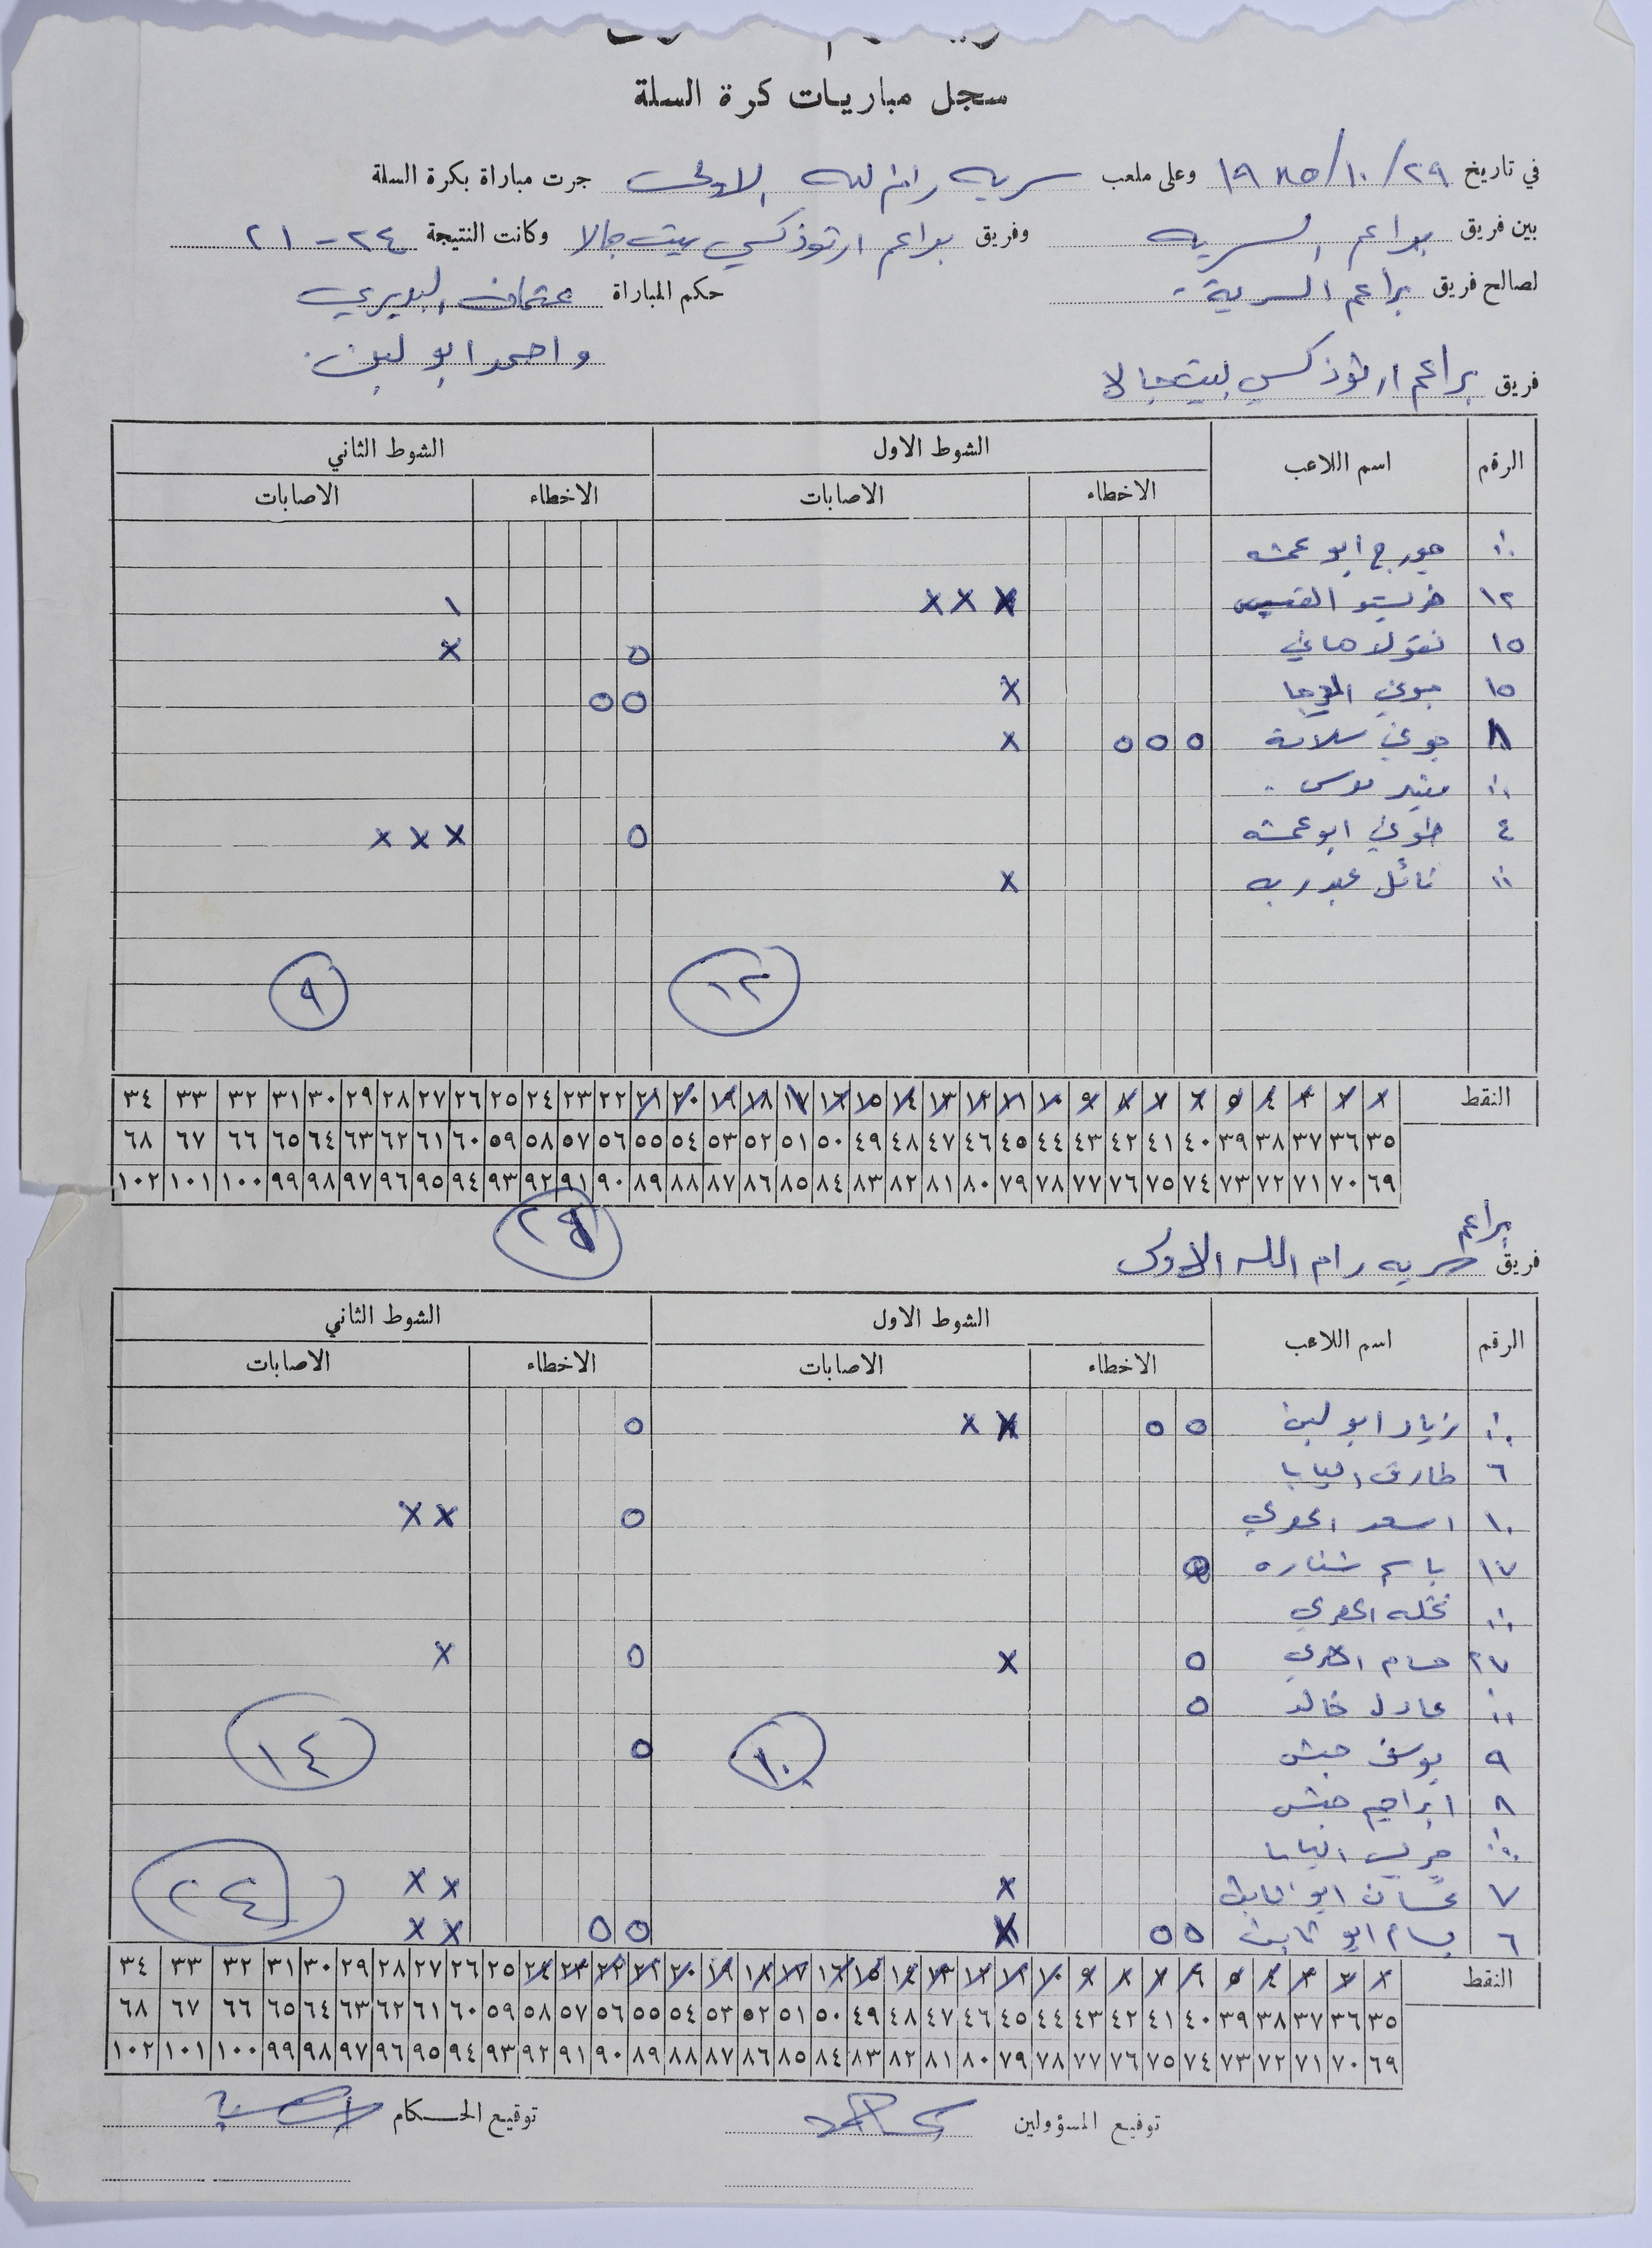 سجل مباريات كرة السلة
في تاريخ ٢٩/١٠/١٩٨٥ وعلى ملعب سريه رام الله الاولى جرت مباراة بكرة السلة
بين فريق براعم السريه وفريق براعم ارثوذكسي بيت جالا وكانت النتيجة ٢٤ - ٢١
لصالح فريق براعم السرية - حكم المباراة عثمان
واحمد ابو لبن
فريق براعم ارثوذكسي بيت جالا
الرقم اسم اللاعب الشوط الاول الشوط الثاني
الاخطاء الاصابات الاخطاء الاصابات
جورج ابو عمشه
١٢ خريستو القسيس X X X ١
١٥ نقولا هاني ٥ X
١٥ جوني X ٥ ٥
٨ جوني سلامة ٥ ٥ ٥ X
موسى
٤ طوني ابو عمشه ٥ X X X
نائل عبد ربه X
١٢ ٩
النقط ١ ٢ ٣ ٤ ٥ ٦ ٧ ٨ ٩ ١٠ ١١ ١٢ ١٣ ١٤ ١٥ ١٦ ١٧ ١٨ ١٩ ٢٠ ٢١ ٢٢ ٢٣ ٢٤ ٢٥ ٢٦ ٢٧ ٢٨ ٢٩ ٣٠ ٣١ ٣٢ ٣٣ ٣٤
٣٥ ٣٦ ٣٧ ٣٨ ٣٩ ٤٠ ٤١ ٤٢ ٤٣ ٤٤ ٤٥ ٤٦ ٤٧ ٤٨ ٤٩ ٥٠ ٥١ ٥٢ ٥٣ ٥٤ ٥٥ ٥٦ ٥٧ ٥٨ ٥٩ ٦٠ ٦١ ٦٢ ٦٣ ٦٤ ٦٥ ٦٦ ٦٧ ٦٨
٦٩ ٧٠ ٧١ ٧٢ ٧٣ ٧٤ ٧٥ ٧٦ ٧٧ ٧٨ ٧٩ ٨٠ ٨١ ٨٢ ٨٣ ٨٤ ٨٥ ٨٦ ٨٧ ٨٨ ٨٩ ٩٠ ٩١ ٩٢ ٩٣ ٩٤ ٩٥ ٩٦ ٩٧ ٩٨ ٩٩ ١٠٠ ١٠١ ١٠٢
براعم
فريق سريه رام الله الاولى
الرقم اسم اللاعب الشوط الاول الشوط الثاني
الاخطاء الاصابات الاخطاء الاصابات
زياد ابو لبن ٥ ٥ X X ٥
٦ طارق البابا
١٠ اسعد الخوري ٥ X X
١٧ باسم شناره
نخله الخوري
٢٧ حسام ٥ X ٥ X
عادل خالد ٥
٩ يوسف حبش ٥
١٠ ١٤
٨ ابراهيم حبش
البابا
٧ غسان ابو X X X
٢٤
٦ بسام ابو ثابت ٥ ٥ X ٥ ٥ X X
النقط ١ ٢ ٣ ٤ ٥ ٦ ٧ ٨ ٩ ١٠ ١١ ١٢ ١٣ ١٤ ١٥ ١٦ ١٧ ١٨ ١٩ ٢٠ ٢١ ٢٢ ٢٣ ٢٤ ٢٥ ٢٦ ٢٧ ٢٨ ٢٩ ٣٠ ٣١ ٣٢ ٣٣ ٣٤
٣٥ ٣٦ ٣٧ ٣٨ ٣٩ ٤٠ ٤١ ٤٢ ٤٣ ٤٤ ٤٥ ٤٦ ٤٧ ٤٨ ٤٩ ٥٠ ٥١ ٥٢ ٥٣ ٥٤ ٥٥ ٥٦ ٥٧ ٥٨ ٥٩ ٦٠ ٦١ ٦٢ ٦٣ ٦٤ ٦٥ ٦٦ ٦٧ ٦٨
٦٩ ٧٠ ٧١ ٧٢ ٧٣ ٧٤ ٧٥ ٧٦ ٧٧ ٧٨ ٧٩ ٨٠ ٨١ ٨٢ ٨٣ ٨٤ ٨٥ ٨٦ ٨٧ ٨٨ ٨٩ ٩٠ ٩١ ٩٢ ٩٣ ٩٤ ٩٥ ٩٦ ٩٧ ٩٨ ٩٩ ١٠٠ ١٠١ ١٠٢
توقيع المسؤولين توقيع الحكام